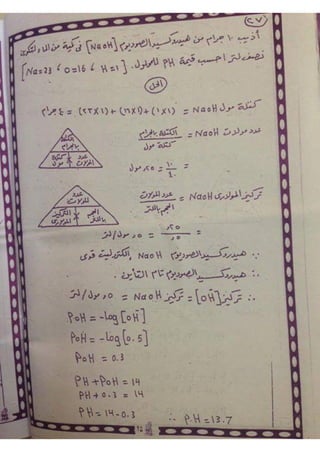 (٢٧)
أذيب ١٠ جرام من هيدروكسيد الصوديوم [NaOH] فى كمية من الماء لتكوين
نصف لتر احسب قيمة PH للمحلول. [Na=23 ، O=16 ، H=1]
الحل
كتلة مول NaOH = (١×١)+(١٦×١)+(٢٣×١) = ٤٠ جرام
عدد مولات NaOH = الكتلة بالجرام / كتلة مول
الكتلة بالجرام
عدد المولات × كتلة مول
= ١٠ / ٤٠ = ٠,٢٥ مول
تركيز المولارى NaOH = عدد المولات / الحجم باللتر
عدد المولات
الحجم باللتر × التركيز المولارى
= ٠,٢٥ / ٠,٥ = ٠,٥ مول/لتر
∵ هيدروكسيد الصوديوم NaOH إلكتروليت قوى
∴ هيدروكسيد الصوديوم تام التأين.
∴ تركيز [OH⁻] = تركيز NaOH = ٠,٥ مول/لتر
POH = -log[OH⁻]
POH = -log[0.5]
POH = 0.3
PH + POH = 14
PH + 0.3 = 14
PH = 14 - 0.3 ∴ PH = 13.7